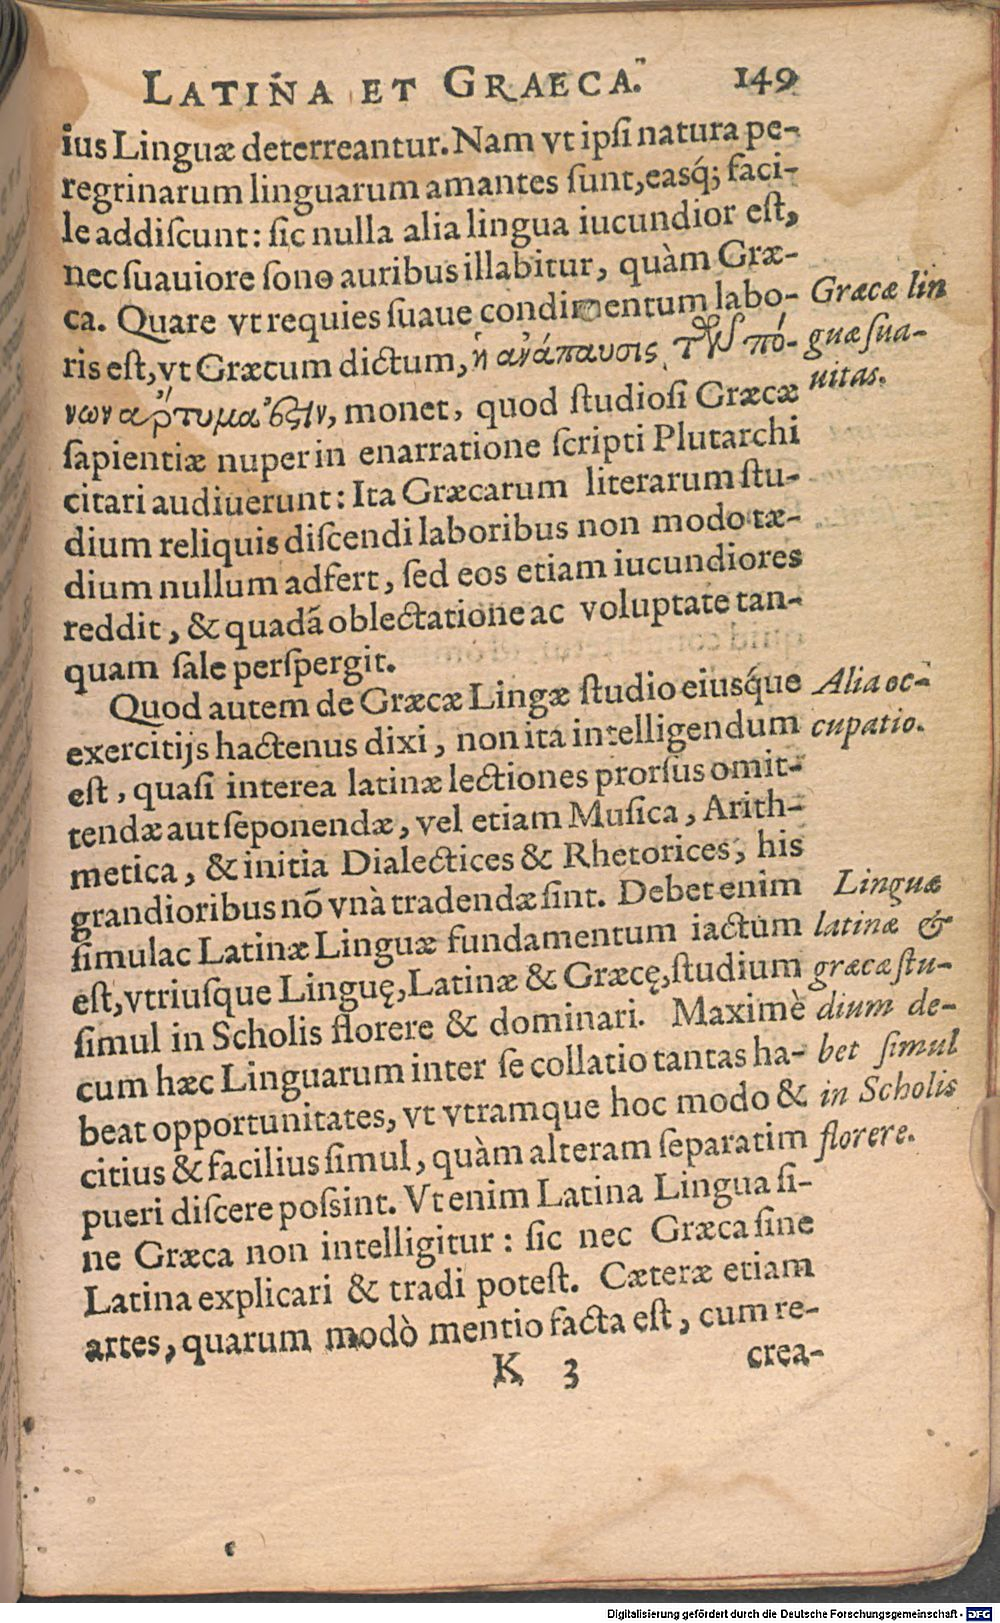 LATINA ET GRAECA. 149
ius Linguæ deterreantur. Nam vt ipſi natura pe-
regrinarum linguarum amantes ſunt, easq́; faci-
le addiſcunt: ſic nulla alia lingua iucundior eſt,
nec ſuauiore ſono auribus illabitur, quàm Græ-
ca. Quare vt requies ſuaue condimentum labo-
ris eſt, vt Græcum dictum, ἡ ἀνάπαυσις τῶν πό-
νων ἄρτυμα ἐστιν, monet, quod ſtudioſi Græcæ
ſapientiæ nuper in enarratione ſcripti Plutarchi
citari audiuerunt: Ita Græcarum literarum ſtu-
dium reliquis diſcendi laboribus non modo tæ-
dium nullum adfert, ſed eos etiam iucundiores
reddit, & quadã oblectatione ac voluptate tan-
quam ſale perſpergit.
Quod autem de Græcæ Lingæ ſtudio eiusq́ue
exercitijs hactenus dixi, non ita intelligendum
eſt, quaſi interea latinæ lectiones prorſus omit-
tendæ aut ſeponendæ, vel etiam Muſica, Arith-
metica, & initia Dialectices & Rhetorices, his
grandioribus nõ vnà tradendæ ſint. Debet enim
ſimulac Latinæ Linguæ fundamentum iactum
eſt, vtriuſque Linguę, Latinæ & Græcę, ſtudium
ſimul in Scholis florere & dominari. Maximè
cum hæc Linguarum inter ſe collatio tantas ha-
beat opportunitates, vt vtramque hoc modo &
citius & facilius ſimul, quàm alteram ſeparatim
pueri diſcere poſsint. Vt enim Latina Lingua ſi-
ne Græca non intelligitur: ſic nec Græca ſine
Latina explicari & tradi poteſt. Cæteræ etiam
artes, quarum modò mentio facta eſt, cum re-
K 3 crea-
Græcæ lin
guæ ſua-
uitas.
Alia oc-
cupatio.
Linguæ
latinæ &
græcæ ſtu-
dium de-
bet ſimul
in Scholis
florere.
Digitalisierung gefördert durch die Deutsche Forschungsgemeinschaft - DFG